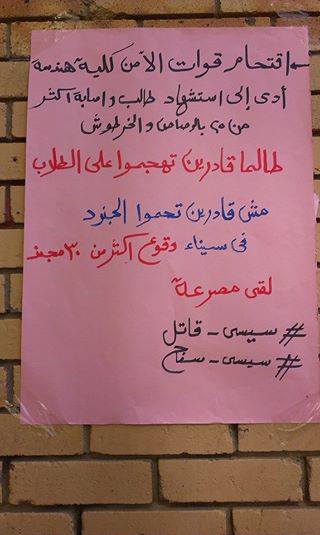 اقتحام قوات الأمن كلية هندسة
أدى إلى استشهاد طالب وإصابة أكثر
من ٢٠ بالرصاص والخرطوش
طالما قادرين تهجموا على الطلاب
مش قادرين تحموا الجنود
فى سيناء وقوع أكثر من ٣٠ مجند
لقى مصرعة
# سيسى - قاتل
# سيسى - سفاح